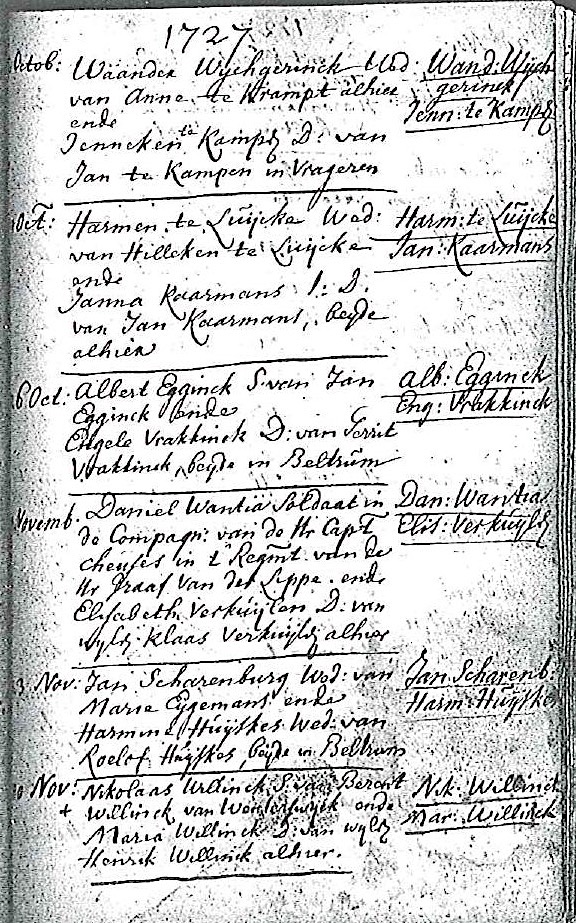 1727
Octob: Waander Wychgerinck Wed: Wand: Wych
van Anne te Krampt alhier gerinck
ende Jenn: te Kampen
Jenneken te Kampen D: van
Jan te Kampen in Vrageren
Oct: Harmen te Luijcke Wed: Harm: te Luijcke
van Hilleken te Luijcke Jan: Kaarmans
ende
Janna Kaarmans J: D.
van Jan Kaarmans, beyde
alhier
6 Oct: Albert Egginck S. van Jan Alb: Egginck
Egginck ende Eng: Vrakkinck
Engele Vrakkinck D: van Gerrit
Vrakkinck, beyde in Beltrum
Novemb. Daniel Wantia Soldaat in Dan: Wantia
de Compagn: van de Hr Capt Elis: Verkuijlen
cheuses in 't Regmt van de
Hr Graaf van der Lippe ende
Elisabeth Verkuijlen D: van
wylen Klaas Verkuijlen alhier
3 Nov: Jan Scharenburg Wed: van Jan Scharenb:
Marie Eygemans ende Harm: Huijskes
Harmine Huijskes Wed: van
Roelof Huijskes, beyde in Beltrum
Nov: Nikolaas Willinck S. van Berent Nik: Willinck
+ Willinck van ende Mar: Willinck
Maria Willinck D: van wylen
Henrik Willinck alhier.